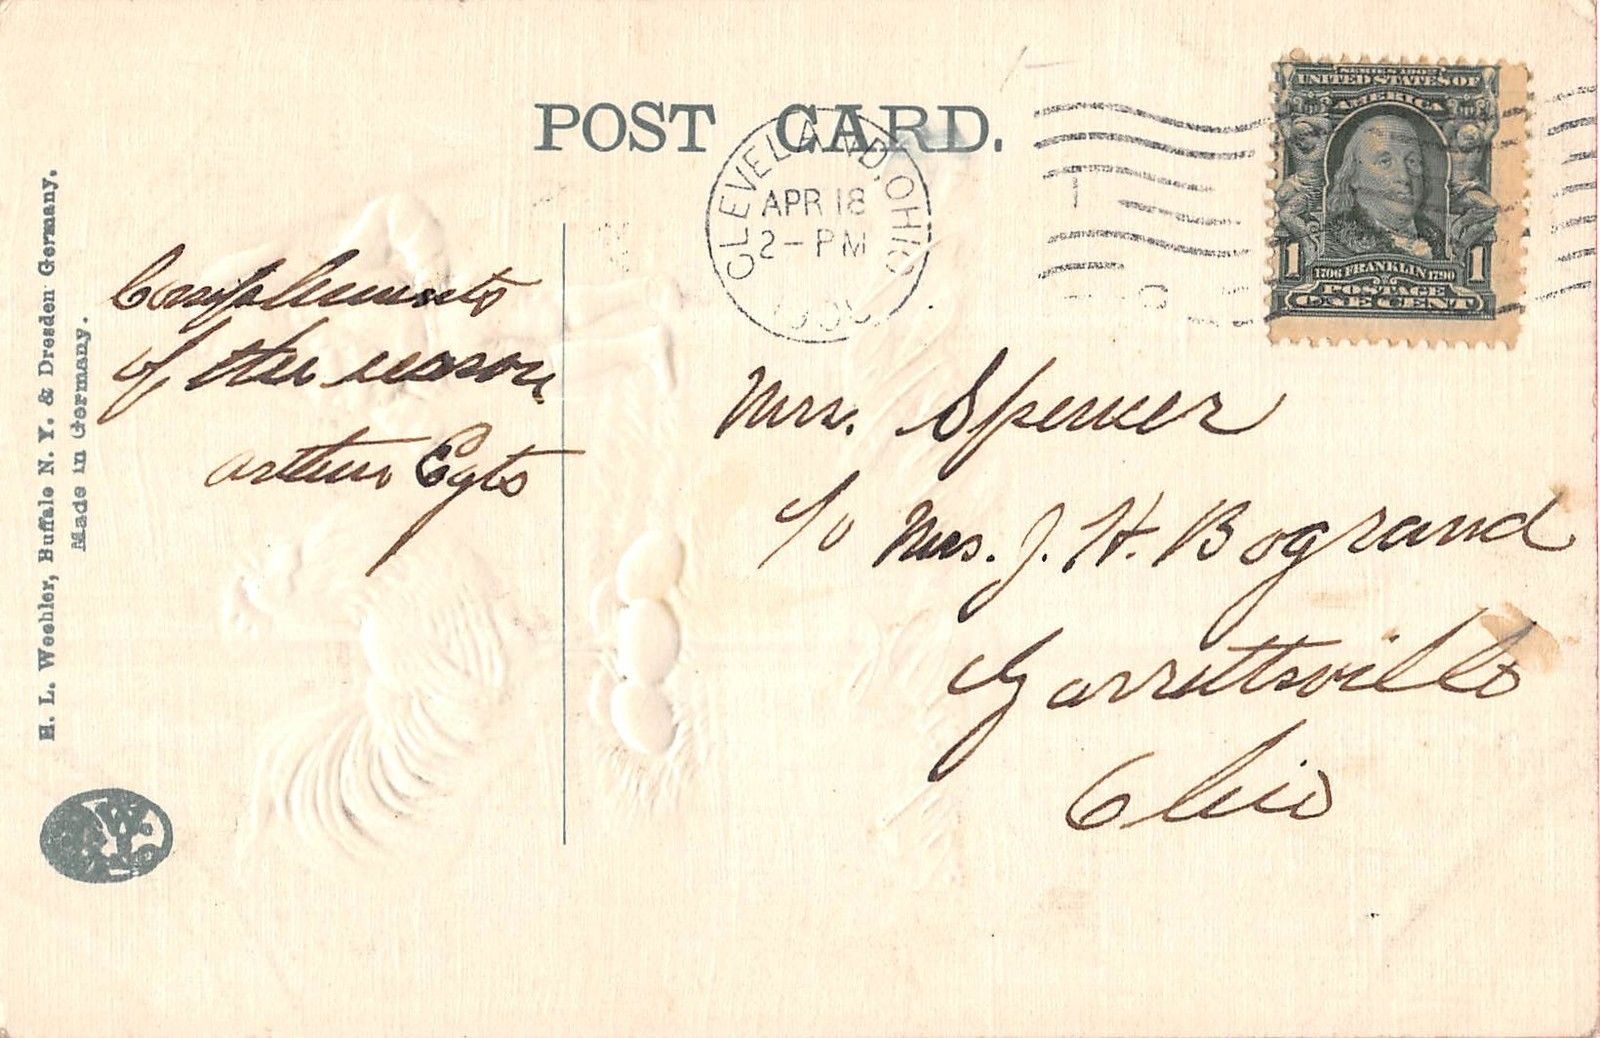 POST CARD.
CLEVELAND, OHIO
APR 18
2 - PM
SERIES 1902
UNITED STATES OF
AMERICA
1 1
1706 FRANKLIN 1790
POSTAGE
ONE CENT
H. L. Woehler, Buffalo N. Y. & Dresden Germany.
Made in Germany.
Compliments
of the season
Arthur
Mrs. Spencer
c/o Mrs. J. H. Bogrand
Garrettsville
Ohio